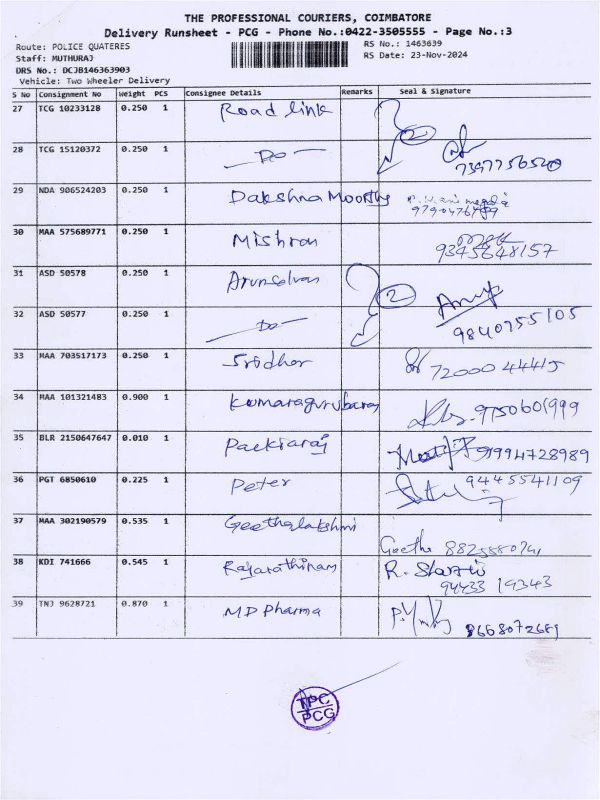 THE PROFESSIONAL COURIERS, COIMBATORE
Delivery Runsheet - PCG - Phone No.:0422-3505555 - Page No.:3
Route: POLICE QUATERES RS No.: 1463639
Staff: MUTHURAJ RS Date: 23-Nov-2024
DRS No.: DCJB146363903
Vehicle: Two Wheeler Delivery
S No Consignment No Weight PCS Consignee Details Remarks Seal & Signature
27 TCG 10233128 0.250 1 Road link
2
28 TCG 15120372 0.250 1 Do
7397756520
29 NDA 906524203 0.250 1 Dakshna Moorthy
30 MAA 575689771 0.250 1 Mishran
9345648157
31 ASD 50578 0.250 1 Arunselvan
2
32 ASD 50577 0.250 1 Do
9840755105
33 MAA 703517173 0.250 1 Sridhar 7200044415
34 MAA 101321483 0.900 1 Kumaragurubaran 9750601999
35 BLR 2150647647 0.010 1 Packiaraj 9994728989
36 PGT 6850610 0.225 1 Peter 9445541109
37 MAA 302190579 0.535 1 Geethalakshmi
Geetha
38 KDI 741666 0.545 1 Rajarathinam R.
94433 19343
39 TNJ 9628721 0.870 1 MD Pharma
8668072689
TPC
PCG